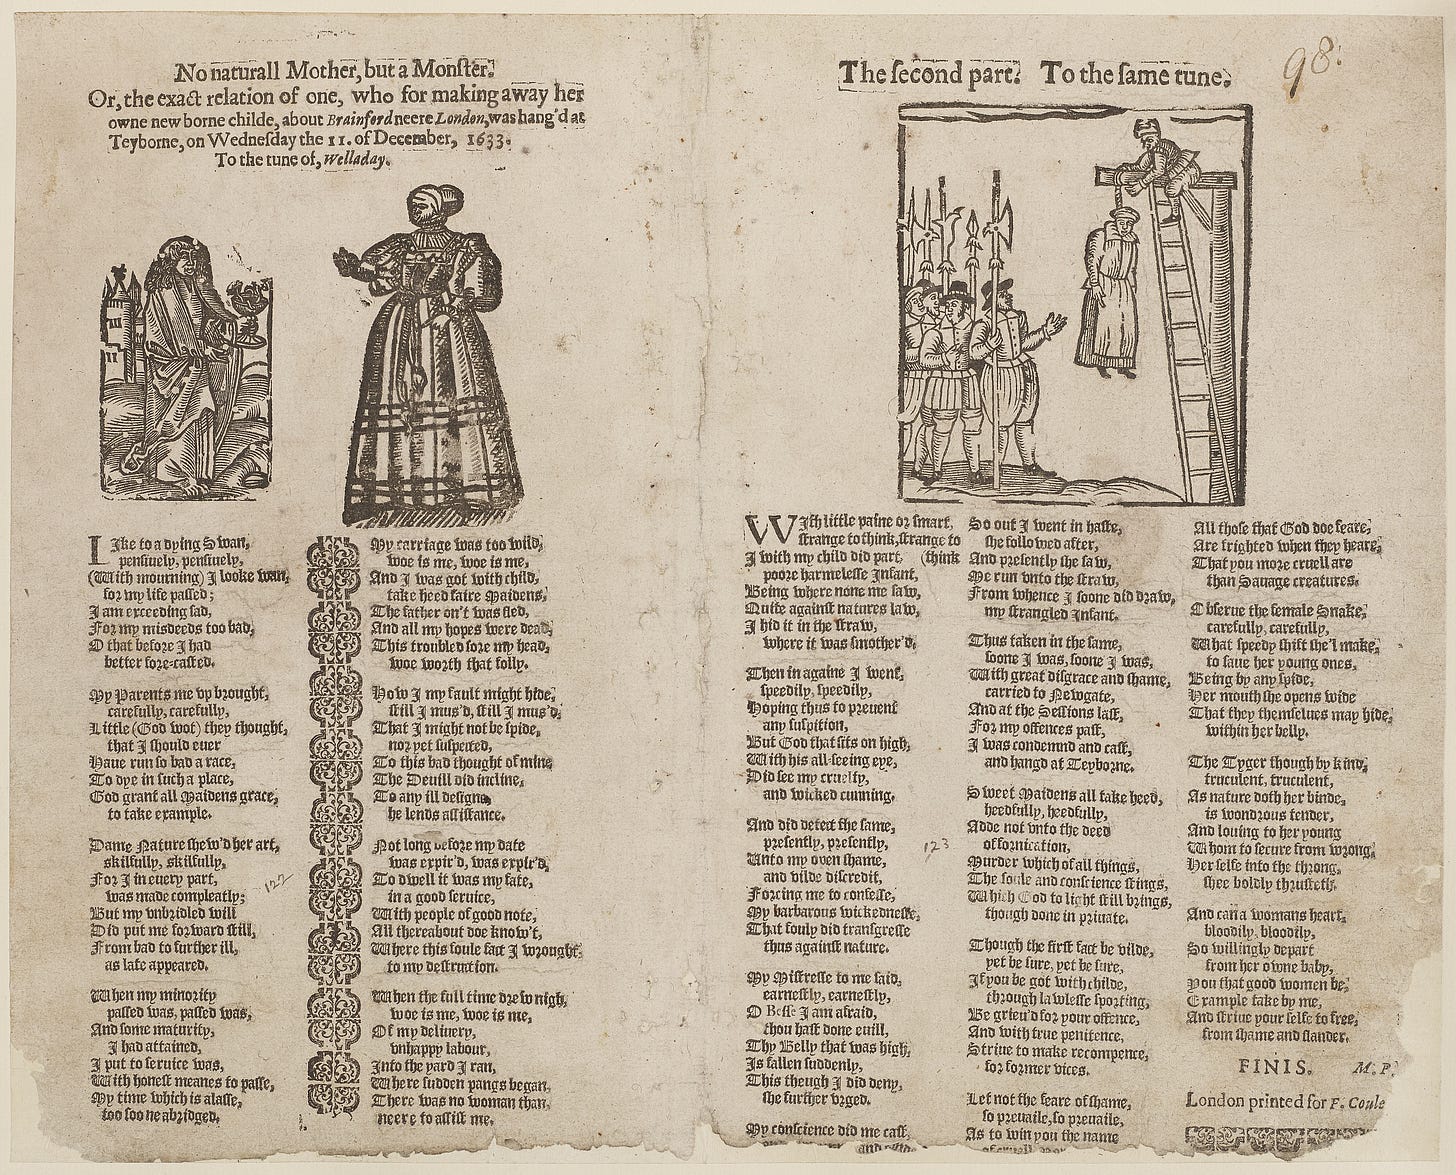 No naturall Mother, but a Monster.
Or, the exact relation of one, who for making away her
owne new borne childe, about Brainford neere London, was hang'd at
Teyborne, on Wednesday the 11. of December, 1633.
To the tune of, Welladay.
LIke to a dying Swan,
pensively, pensively,
(With mourning) I looke wan,
for my life passed;
I am exceeding sad,
For my misdeeds too bad,
O that before I had
better fore-casted.
My Parents me vp brought,
carefully, carefully,
Little (God wot) they thought,
that I should euer
Haue run so bad a race,
To dye in such a place,
God grant all Maidens grace,
to take example.
Dame Nature shew'd her art,
skilfully, skilfully,
For I in euery part,
was made compleatly;
But my vnbridled will
Did put me forward still,
From bad to further ill,
as late appeared.
When my minority
passed was, passed was,
And some maturity,
I had attained,
I put to seruice was,
With honest meanes to passe,
My time which is alasse,
too soone abridged.
122
My carriage was too wild,
woe is me, woe is me,
And I was got with child,
take heed faire Maidens,
The father on't was fled,
And all my hopes were dead,
This troubled sore my head,
woe worth that folly.
How I my fault might hide,
still I mus'd, still I mus'd,
That I might not be spide,
nor yet suspected,
To this bad thought of mine
The Deuill did incline,
To any ill designe
he lends assistance.
Not long before my date
was expir'd, was expir'd,
To dwell it was my fate,
in a good seruice,
With people of good note,
All thereabout doe know't,
Where this foule fact I wrought,
to my destruction.
When the full time drew nigh,
woe is me, woe is me,
Of my deliuery,
vnhappy labour,
Into the yard I ran,
Where sudden pangs began,
There was no woman than
neere to assist me.
The second part. To the same tune.
98.
WIth little paine or smart,
strange to think, strange to
I with my child did part, (think
poore harmelesse Infant,
Being where none me saw,
Quite against natures law,
I hid it in the straw,
where it was smother'd.
Then in againe I went,
speedily, speedily,
Hoping thus to preuent
any suspition,
But God that sits on high,
With his all-seeing eye,
Did see my cruelty,
and wicked cunning.
And did detect the same,
presently, presently,
Unto my owen shame,
and vilde discredit,
Forcing me to confesse,
My barbarous wickednesse,
That fouly did transgresse
thus against nature.
My Mistresse to me said,
earnestly, earnestly,
O Besse I am afraid,
thou hast done euill,
Thy Belly that was high,
Is fallen suddenly,
This though I did deny,
she further vrged.
My conscience did me cast,
123
So out I went in haste,
she followed after,
And presently she saw,
Me run vnto the straw,
From whence I soone did draw,
my strangled Infant.
Thus taken in the same,
soone I was, soone I was,
With great disgrace and shame,
carried to Newgate,
And at the Sessions last,
For my offences past,
I was condemnd and cast,
and hangd at Teyborne.
Sweet Maidens all take heed,
heedfully, heedfully,
Adde not vnto the deed
of fornication,
Murder which of all things,
The soule and conscience stings,
Which God to light still brings,
though done in priuate.
Though the first fact be vilde,
yet be sure, yet be sure,
If you be got with childe,
through lawlesse sporting,
Be grieu'd for your offence,
And with true penitence,
Striue to make recompence,
for former vices.
Let not the feare of shame,
so preuaile, so preuaile,
As to win you the name
All those that God doe feare,
Are frighted when they heare,
That you more cruell are
than Sauage creatures.
Obserue the female Snake,
carefully, carefully,
What speedy shift she'l make,
to saue her young ones,
Being by any spide,
Her mouth she opens wide
That they themselues may hide,
within her belly.
The Tyger though by kind,
truculent, truculent,
As nature doth her binde,
is wondrous tender,
And louing to her young
Whom to secure from wrong,
Her selfe into the throng,
shee boldly thrusteth.
And can a womans heart,
bloodily, bloodily,
So willingly depart
from her owne baby,
You that good women be,
Example take by me,
And striue your selfe to free,
from shame and slander.
FINIS. M. P.
London printed for F. Coule